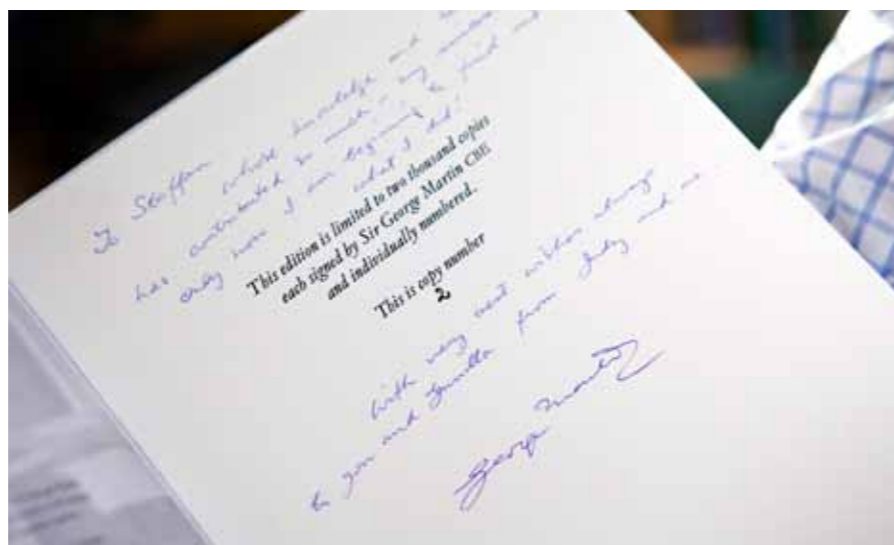 To Staffan whose knowledge and
has contributed so much — my
only now I am beginning to find out
what I did!
This edition is limited to two thousand copies
each signed by Sir George Martin CBE
and individually numbered.
This is copy number
2
With very best wishes always
to you and Gunilla from Judy and me
George Martin